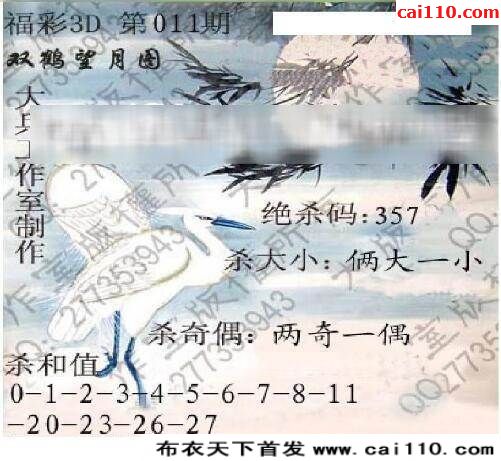 cai110.com
福彩3D 第011期
双鹤望月图
大兵工作室制作
绝杀码:357
杀大小:俩大一小
杀奇偶:两奇一偶
杀和值
0-1-2-3-4-5-6-7-8-11
-20-23-26-27
QQ277353943
布衣天下首发 www.cai110.com